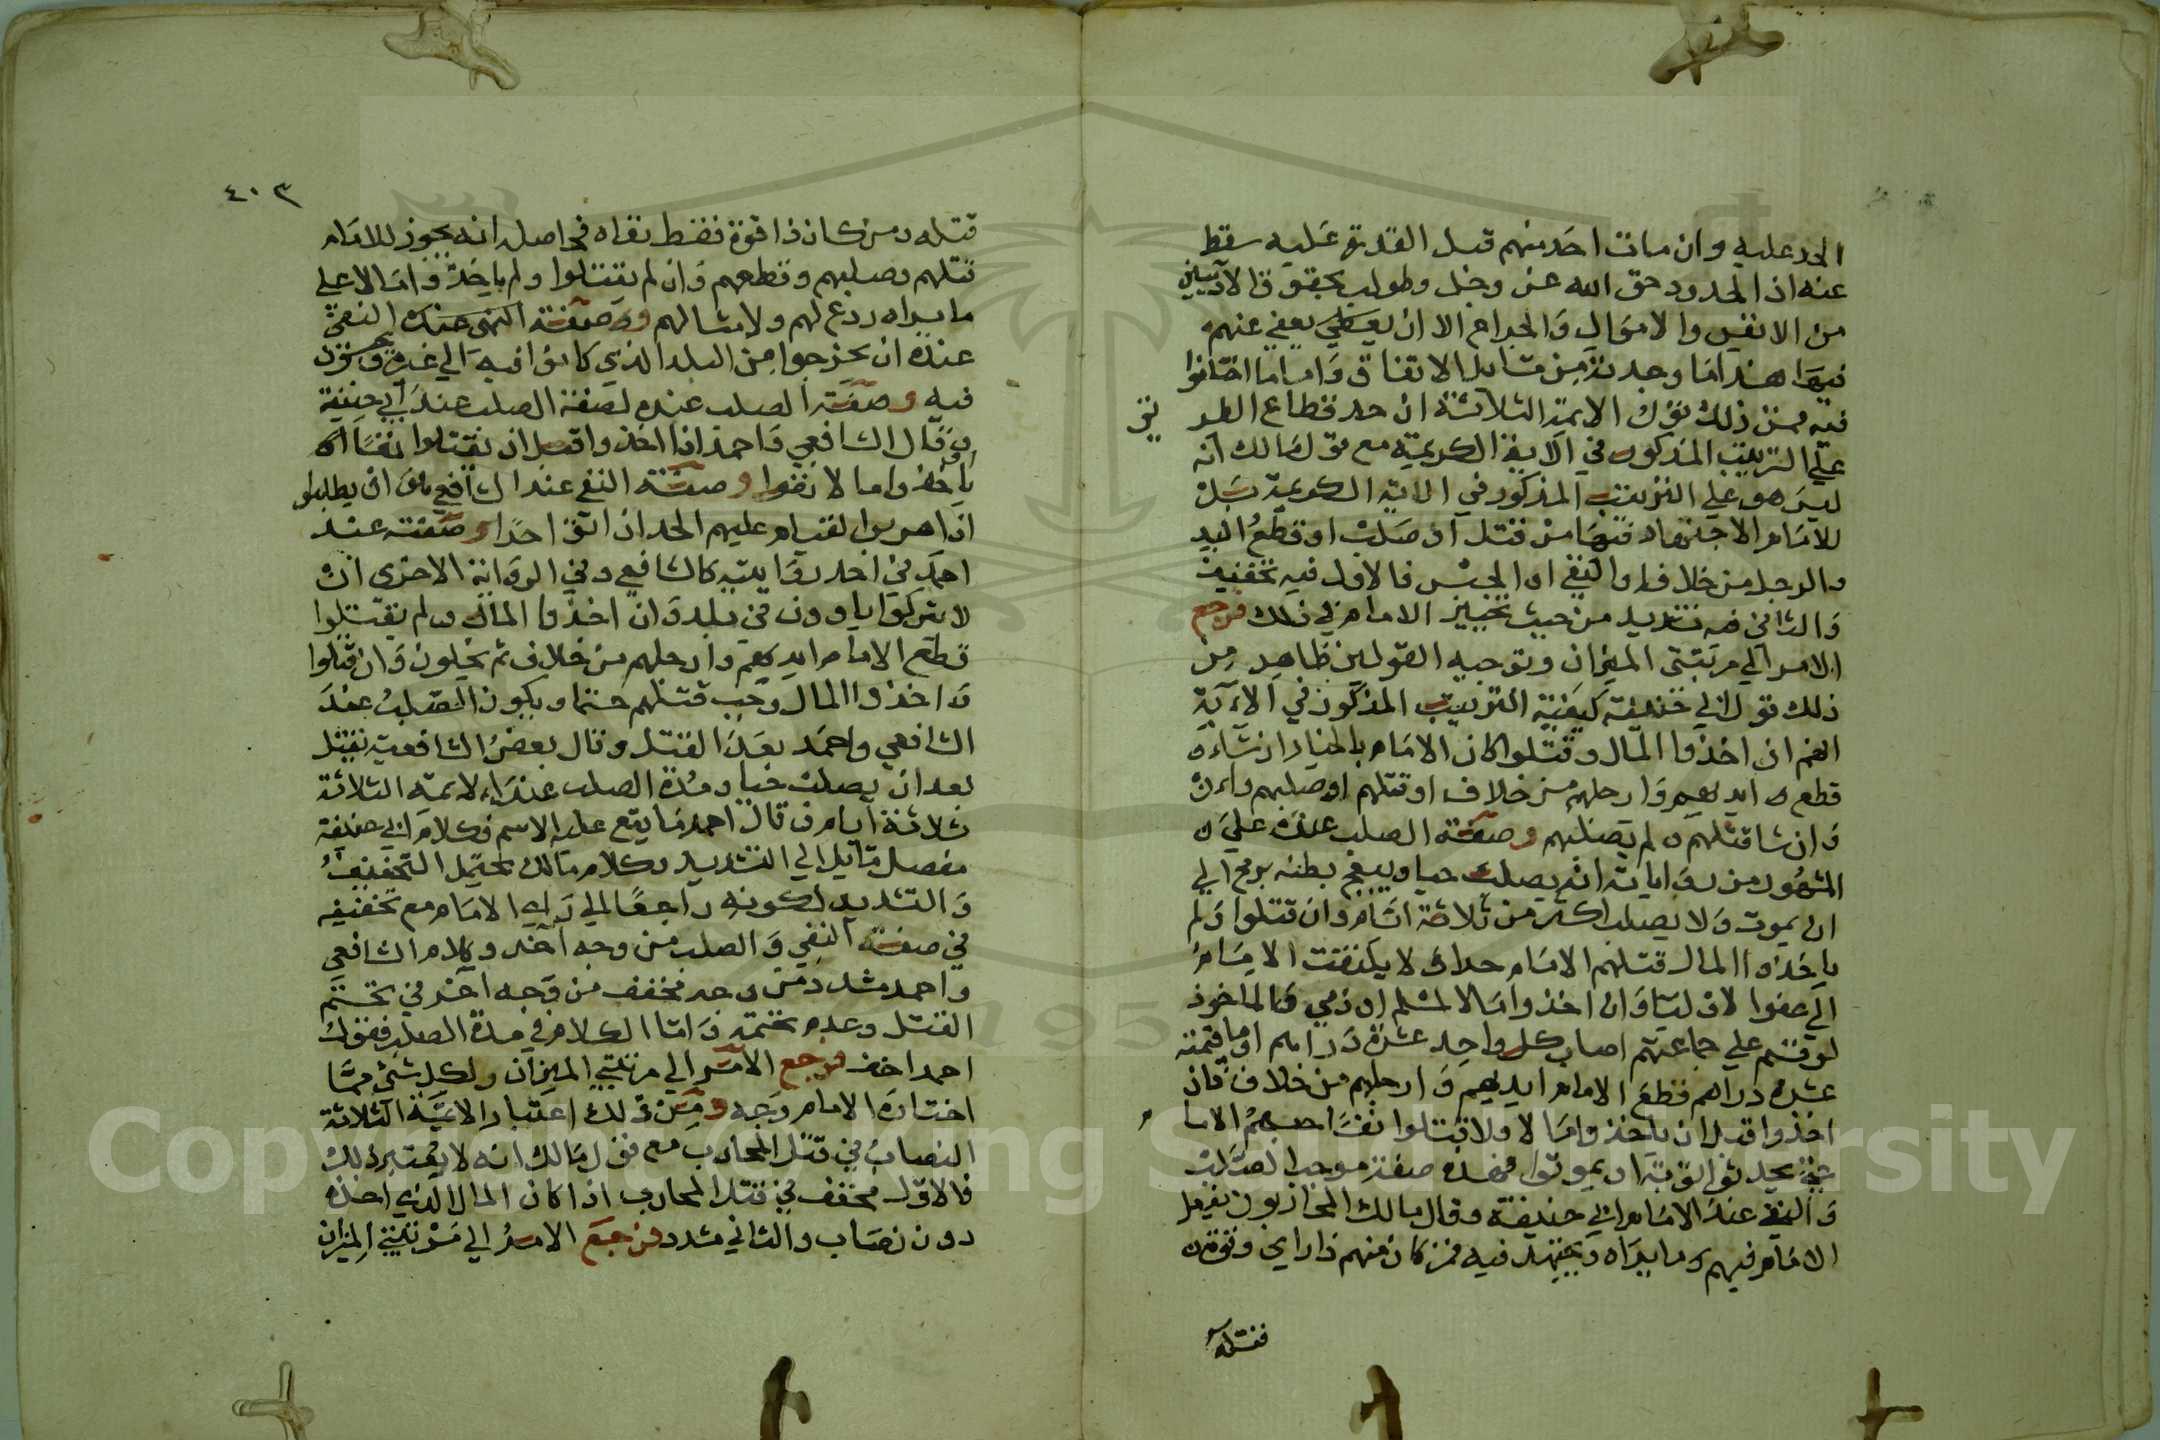 الحد عليه وان مات احد منهم قبل القدرة عليه سقط
عنه اذ الحدود حق الله عز وجل وطولب بحقوق الآدميين
من الانفس والاموال والجراح الا ان يعفي عنهم
فيها هذا ما وجدته من مسايل الاتفاق واما ما اختلفوا
فيه فمن ذلك قول الايمة الثلاثة ان حد قطاع الطر
يق
علي الترتيب المذكور في الآية الكريمة مع قول مالك انه
ليس هو علي الترتيب المذكور في الاية الكريمة بل
للامام الاجتهاد فيها من قتل او صلب او قطع اليد
والرجل من خلاف او النفي او الحبس فالاول فيه تخفيف
والثاني فيه تشديد من حيث تخيير الامام في ذلك فرجع
الامر الي مرتبتي الميزان وتوجيه القولين ظاهر من
ذلك قول ابي حنيفة كيفية الترتيب المذكور في الآية
انهم ان اخذوا المال وقتلوا كان الامام بالخيار ان شاء
قطع ايديهم وارجلهم من خلاف او قتلهم او صلبهم وان
وان شا قتلهم ولم يصلبهم وصفة الصلب عنده علي
المشهور من رواياته انه يصلب حيا ويبعج بطنه برمح الي
ان يموت ولا يصلب اكثر من ثلاثة ايام وان قتلوا ولم
ياخذوا المال قتلهم الامام حدا لا يلتفت الامام
الي عفو الاوليا وان اخذوا مالا لمسلم او ذمي والماخوذ
لو قسم علي جماعتهم اصاب كل واحد عشرة دراهم او ما قيمته
عشرة دراهم قطع الامام ايديهم وارجلهم من خلاف فان
اخذوا قبل ان ياخذوا مالا ولا قتلوا نفسا حبسهم الاما
م
حتي يحدثوا توبة او يموتوا فهذه صفة موجب الصلب
والنفي عند الامام ابي حنيفة وقال مالك المحاربون يفعل
الامام فيهم ما يراه ويجتهد فيه فمن كان منهم ذا راي وقوة
فقتله
٤٠٣
قتله ومن كان ذا قوة فقط نفاه في اصله انه يجوز للامام
قتلهم وصلبهم وقطعهم وان لم يقتلوا ولم ياخذوا مالا علي
ما يراه ردع لهم ولامثالهم وصفة النفي عنده
عنده ان يخرجوا من البلد الذي كانوا فيه الي غيره ويحبسون
فيه وصفة الصلب عنده لصفة الصلب عند ابي حنيفة
وقال الشافعي واحمد اذا اخذوا قبل ان يقتلوا نفسا او
ياخذوا مالا نفوا وصفة النفي عند الشافعي ان يطلبوا
اذا هربوا ليقام عليهم الحد ان اتوا حدا وصفته عند
احمد في احد روايتيه كالشافعي وفي الرواية الاخري ان
لا يتركوا ياوون في بلد وان اخذوا المال ولم يقتلوا
قطع الامام ايديهم وارجلهم من خلاف ثم يخلون وان قتلوا
واخذوا المال وجب قتلهم حتما ويكون الصلب عند
الشافعي واحمد بعد القتل وقال بعض الشافعية يقتل
بعد ان يصلب حيا ومدة الصلب عند الايمة الثلاثة
ثلاثة ايام وقال احمد ما يقع عليه الاسم فكلام ابي حنيفة
مفصل مايل الي التشديد وكلام مالك يحتمل التخفيف
والتشديد لكونه راجعا الي راي الامام مع تخفيفه
في صفة النفي والصلب من وجه آخر وكلام الشافعي
واحمد مشدد من وجه مخفف من وجه آخر في تحتم
القتل وعدم تحتمه واما الكلام في مدة الصلب فقول
احمد اخف فرجع الامر الي مرتبتي الميزان ولكل شئ مما
اختاره الامام وجه ومن ذلك اعتبار الايمة الثلاثة
النصاب في قتل المحارب مع قول مالك انه لا يعتبر ذلك
فالاول مخفف في قتل المحارب اذا كان المال الذي اخذه
دون نصاب والثاني مشدد فرجع الامر الي مرتبتي الميزان
Copyright © King Saud University
195